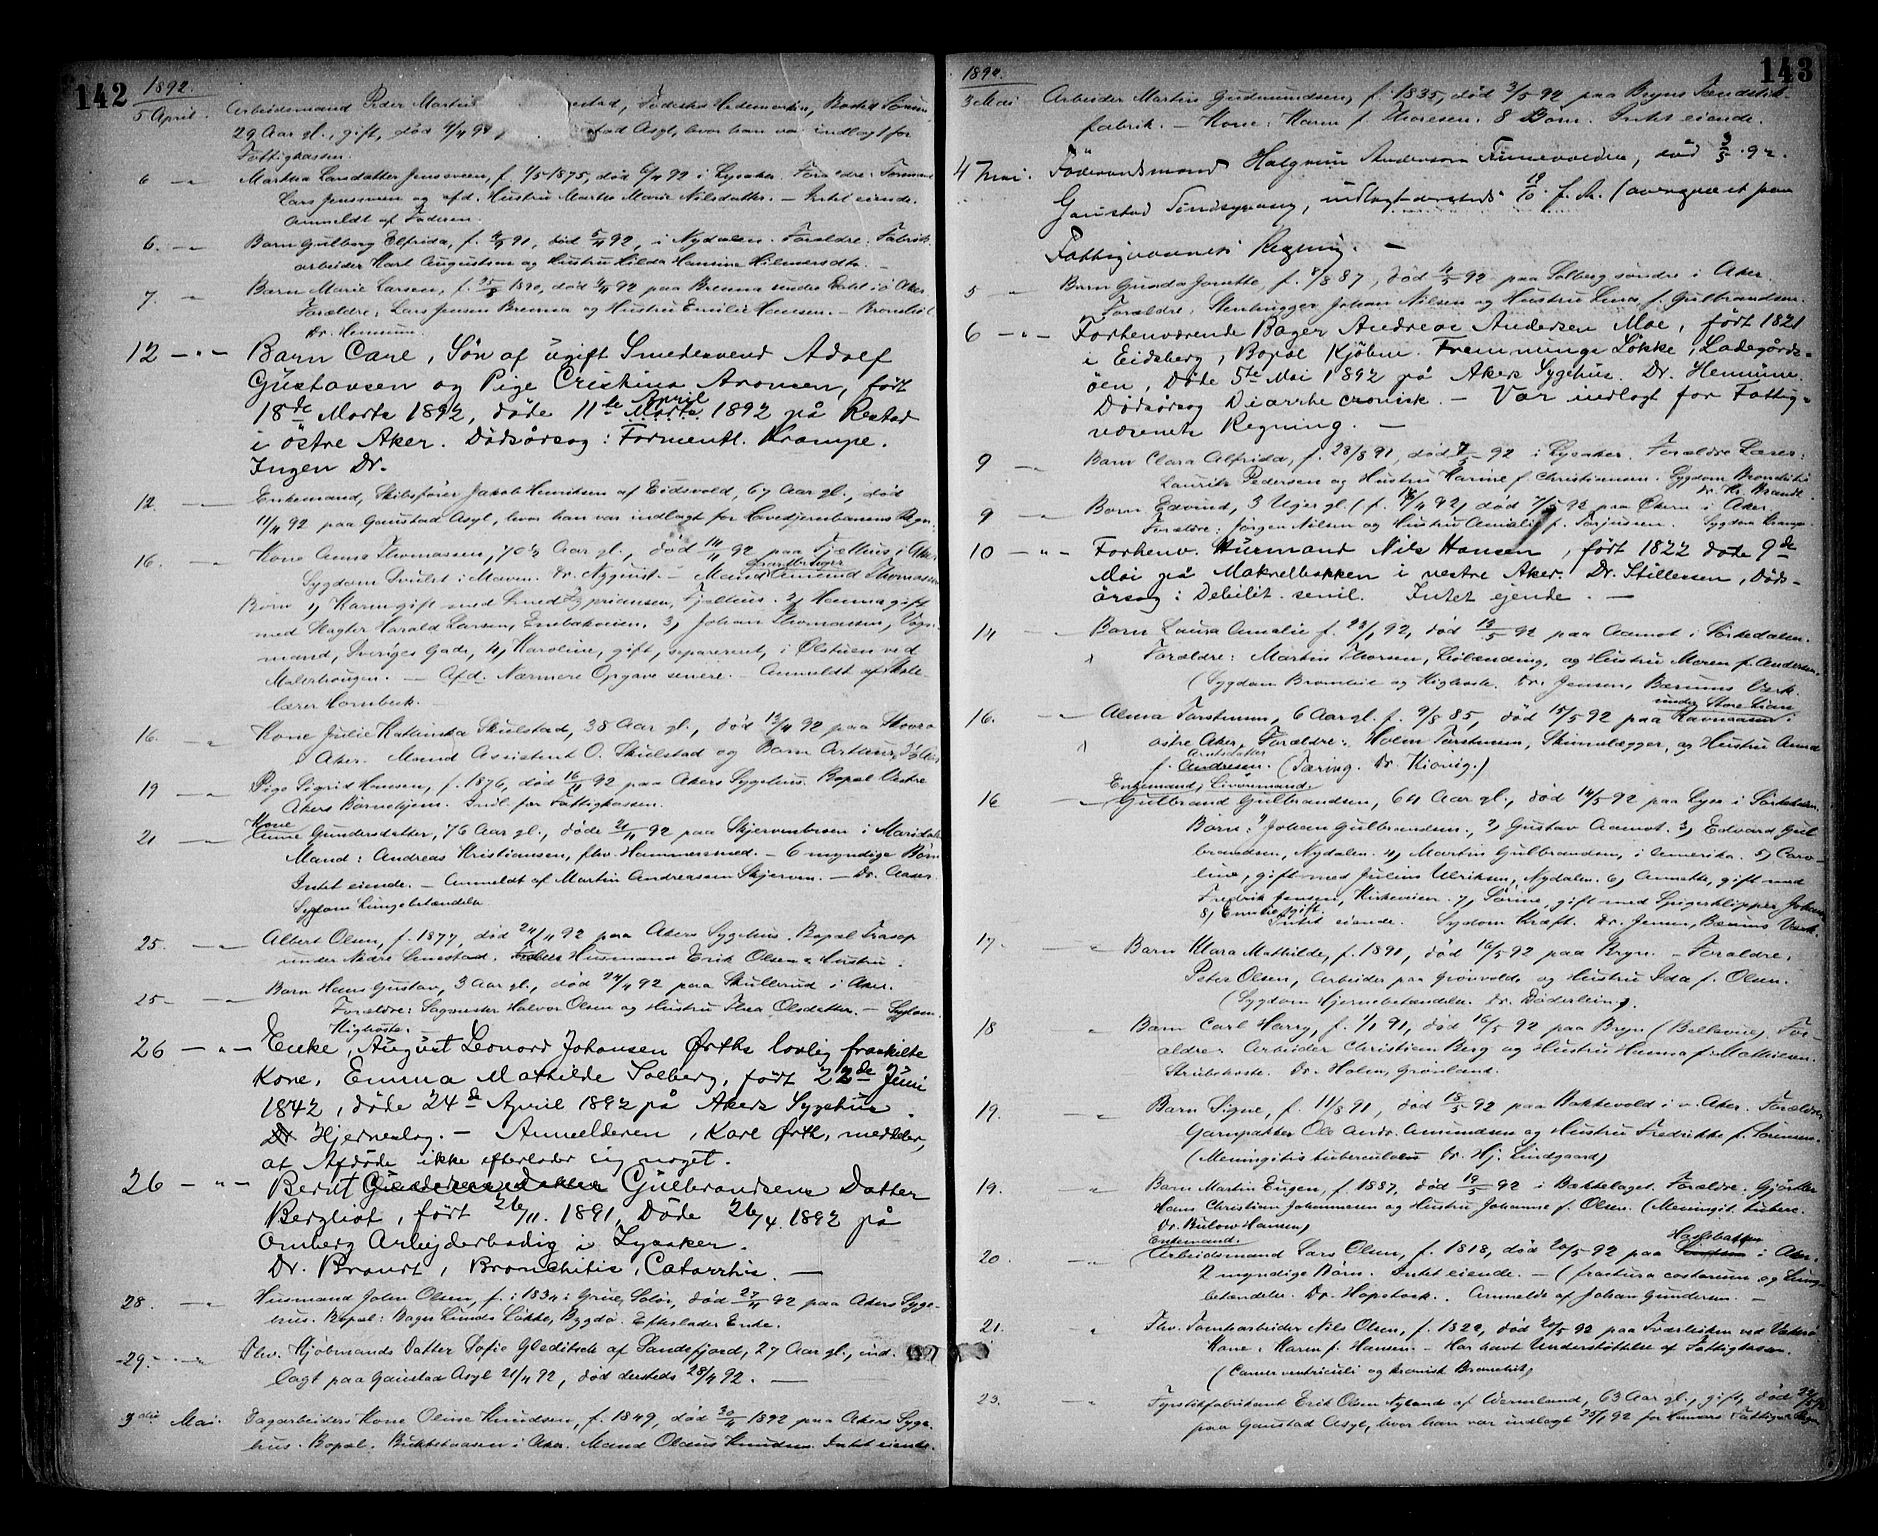 142
1892.
5 April. Arbeidsmand Peder Martin stad, Fødested Hedemarken, Bosted
29 Aar gl., gift, død 4/4 92, stad Asyl, hvor han var indlagt for
Fattigkassen.
6 -"- Martha Larsdatter Jenssveen, f. 1/5 1875, død 6/4 92 i Lysaker. Forældre:
Lars Jenssveen og afd. Hustru Marthe Marie Nilsdatter. - Intet eiende.
Anmeldt af Faderen.
6. -"- Barn Gulborg Elfrida, f. 91, død 5/4 92, i Nydalen. Forældre: Fabrik-
arbeider Karl Augustsen og Hustru Hilda Hansine Hilmersdtr. -
7. -"- Barn Marie Larsen, f. 1890, død 92 paa Brenna søndre i Ø. Aker
Forældre: Lars Jensen Brenna og Hustru Emilie Hansen. - Bronchit
Dr. Hennum.
12 -"- Barn Care, Søn af ugift Smedesvend Adolf
Gustavsen og Pige Cristina Aronsen, født
18de Marts 1892, døde 11te Marts April 1892 på Refstad
i østre Aker. Dødsårsag: Formentl. Krampe.
Ingen Dr.
12. -"- Enkemand, Skibsfører Jakob Henriksen af Eidsvold, 67 Aar gl., død
11/4 92 paa Gaustad Asyl, hvor han var indlagt for Hovedjernbanens Regn.
16. -"- Kone Anna Thomassen, 70½ Aar gl., død 14/4 92 paa Fjælhus i Aker
Sygdom Svulst i Maven. Dr. Nyquist. - Mand Gaardbruger Amund Thomassen
Børn 1) Karen gift med Smed Zypriansen, Fjelhus. 2) Hanna gift
med Slagter Harald Larsen, Enebakveien, 3) Johan Thomassen, Vogn-
mand, Sveriges Gade, 4) Karoline, gift, separeret, i Ølstuen ved
Malerhaugen. - Afd. Nærmere Opgave senere. - Anmeldt af Skole-
lærer Hornbeck. -
16. -"- Kone Julie Kathinka Skulstad, 38 Aar gl., død 13/4 92 paa
i Aker. Mand Assistent O. Skulstad og Barn Arthur,
19 -"- Pige Sigrid Hansen, f. 1876, død 16/4 92 paa Akers Sygehus. Bopæl Vestre
Akers Børnehjem. Indl. for Fattigkassen.
21 -"- Kone Anne Gundersdatter, 76 Aar gl., døde 20/4 92 paa Skjervenbroen i Maridalen
Mand: Andreas Kristiansen, fhv. Hammersmed. - 6 myndige Børn
Intet eiende. - Anmeldt af Martin Andreassen Skjerven. - Dr. Aaser.
Sygdom Lungebetændelse
25. -"- Albert Olsen, f. 1877, død 24/4 92 paa Akers Sygehus. Bopæl Traso
under Nedre Linestad. Husmand Erik Olsen & Hustru.
25 -"- Barn Hans Gustav, 3 Aar gl., død 24/4 92 paa Skullerud i Aker.
Forældre: Sagmester Halvor Olsen og Hustru Thea Olsdatter. - Sygdom.
Kighoste. -
26 -"- Enke, August Leonard Johansen Ørths lovlig fraskilte
Kone, Emma Mathilde Solberg, født 22de Juni
1842, døde 24de April 1892 på Akers Sygehus.
Dr Hjerneslag. - Anmelderen, Karl Ørth, meddeler,
at Afdøde ikke efterlader sig noget.
26 -"- Bernt Gulbrandsens Datter
Bergliot, født 26/11. 1891, Døde 26/4. 1892 på
Omberg Arbejderbolig i Lysaker.
Dr. Brandt, Bronchitis, Catarrhis. -
28. -"- Husmand John Olsen, f. i 1834 i Grue, Solør, død 27/4 92 paa Akers Syge-
hus. Bopæl: Bager Linds Løkke, Bygdø. Efterlader Enke.
29. -"- Fhv. Kjøbmands Datter Sofie Gleditsch af Sandefjord, 27 Aar gl., ind-
lagt paa Gaustad Asyl 21/4 92, død dersteds 28/4 92. -
3die Mai. Dagarbeiders Kone Oline Knudsen, f. 1849, død 30/4 1892 paa Akers Syge-
hus. Bopæl. Bukkehaasen i Aker. Mand Olaus Knudsen. Intet eiende.
143
1892.
3 Mai Arbeider Martin Gudmundsen, f. 1835, død 3/5 92 paa Bryns Tændstik-
fabrik. - Kone: Karen f. Thoresen. 8 Børn. Intet eiende.
4 Mai. Føderaadsmand Halgrim Andersen Finnevolden, død 3/5. 92.
Gaustad Sindsygeasyl, indlagt dersteds 19/10. f. A. (overgaaet paa
Fattigvæsenets Regning. -
5 -"- Barn Gunda Josette, f. 1/8 87, død 4/5 92 paa Solberg søndre i Aker.
Forældre, Stenhugger Johan Nilsen og Hustru Lina f. Gulbrandsen.
6 -"- Forhenværende Bager Andreas Andersen Moe, født 1821
i Eidsberg, Bopæl Kjøbm. Fremmings Løkke, Ladegårds-
øen, Døde 5te Mai 1892 på Akers Sygehus. Dr. Hennum.
Dødsårsag Diarrhe cronisk. - Var indlagt for Fattig-
væsenets Regning. -
9 -"- Barn Clara Alfrida, f. 28/8 91, død 7/5 92 i Lysaker. Forældre Læser:
Laurits Pedersen og Hustru Karine f. Christiansen. Sygdom Bronchitis
Dr. Kr. Brandt.
9 -"- Barn Edvind, 3 Uger gl. (f. 16/4 92) død 7/5 92 paa Økern i Aker
Forældre: Jørgen Nilsen og Hustru Amalie f. Torjussen. Sygdom Krampe
10 -"- Forhenv. Husmand Nils Hansen, født 1822 døde 9de
Mai på Makrelbakken i vestre Aker. Dr. Stillesen, Døds-
årsag: Debilit. senil. Intet ejende. -
14 -"- Barn Laura Amalie f. 28/1 92, død 13/5 92 paa Aamot i Sørkedalen.
Forældre: Martin Thorsen, Leilænding, og Hustru Maren f. Andersen,
(Sygdom Bronchit og Kighoste. Dr. Jensen, Bærums Værk.
16. -"- Alma Torstensen, 6 Aar gl. f. 9/8 85, død 15/5 92 paa Ravnaasen under Store Lian i
østre Aker, Forældre: Holm Torstensen, Skinnelægger, og Hustru Anna
f. Andresen Arntsdatter. (Tæring. Dr. Kiønig.)
16 -"- Enkemand, Livøremand. Gulbrand Gulbrandsen, 64 Aar gl., død 14/5 92 paa Lysa i Sørkedalen.
Børn: 1) Johan Gulbrandsen., 2) Gustav Aamot. 3) Edvard Gul-
brandsen, Nydalen. 4) Martin Gulbrandsen, i Amerika. 5) Caro-
line, gift med Julius Ulriksen, Nydalen. 6) Annette, gift med
Fredrik Jensen, Kirkeveien. 7) Sørine, gift med Spigerklipper Johan
8) Emilie, ugift. Intet eiende. Sygdom Kræft. Dr. Jensen, Bærums Værk.
17. -"- Barn Klara Mathilde, f. 1891, død 16/5 92 paa Bryn. - Forældre,
Peter Olsen, Arbeider paa Grønvold, og Hustru Ida f. Olsen.
(Sygdom Hjernebetændelse. Dr. Døderlein).
18 " Barn Carl Harry, f. 1/1 91, død 16/5 92 paa Bryn (Bellevue), For-
ældre: Arbeider Christian Berg og Hustru Hanna f. Mathisen.
Strubehoste. Dr. Holm, Grønland.
19. -"- Barn Signe, f. 11/8 91, død 18/5 92 paa Bakkevold i v. Aker. Forældre,
Garnpakker Ole Andr. Amundsen og Hustru Fredrikke f. Sørensen.
(Meningitis tuberculosis Dr. Hj. Lindgaard)
19. " Barn Martin Eugen, f. 1887, død 19/5 92 i Bækkelaget. Forældre. Gjørtler
Hans Christian Johannesen og Hustru Johanne f. Olsen. (Meningit. tuberc.
Dr. Bülow Hansen)
20. -"- Enkemand. Arbeidsmand Lars Olsen, f. 1818, død 20/5 92 paa i Aker.
2 myndige Børn. Intet eiende. - (fractura costarum og Lunge-
betændelse. Dr. Hopstock. Anmeldt af Johan Gundersen. -
21. " Fhv. Tomtearbeider Nils Olsen, f. 1822, død 20/5 92 paa Tværbækken ved Vækerø
Kone, Karen f. Hansen. - Har havt Understøttelse af Fattigkassen.
(Cancer ventriculi og kronisk Bronchit)
23. -"- Fyrstikfabrikant Erik Olsen Nyland af Wermland, 63 Aar gl., gift, død
paa Gaustad Asyl, hvor han var indlagt 92 for Fattigv. Regn.